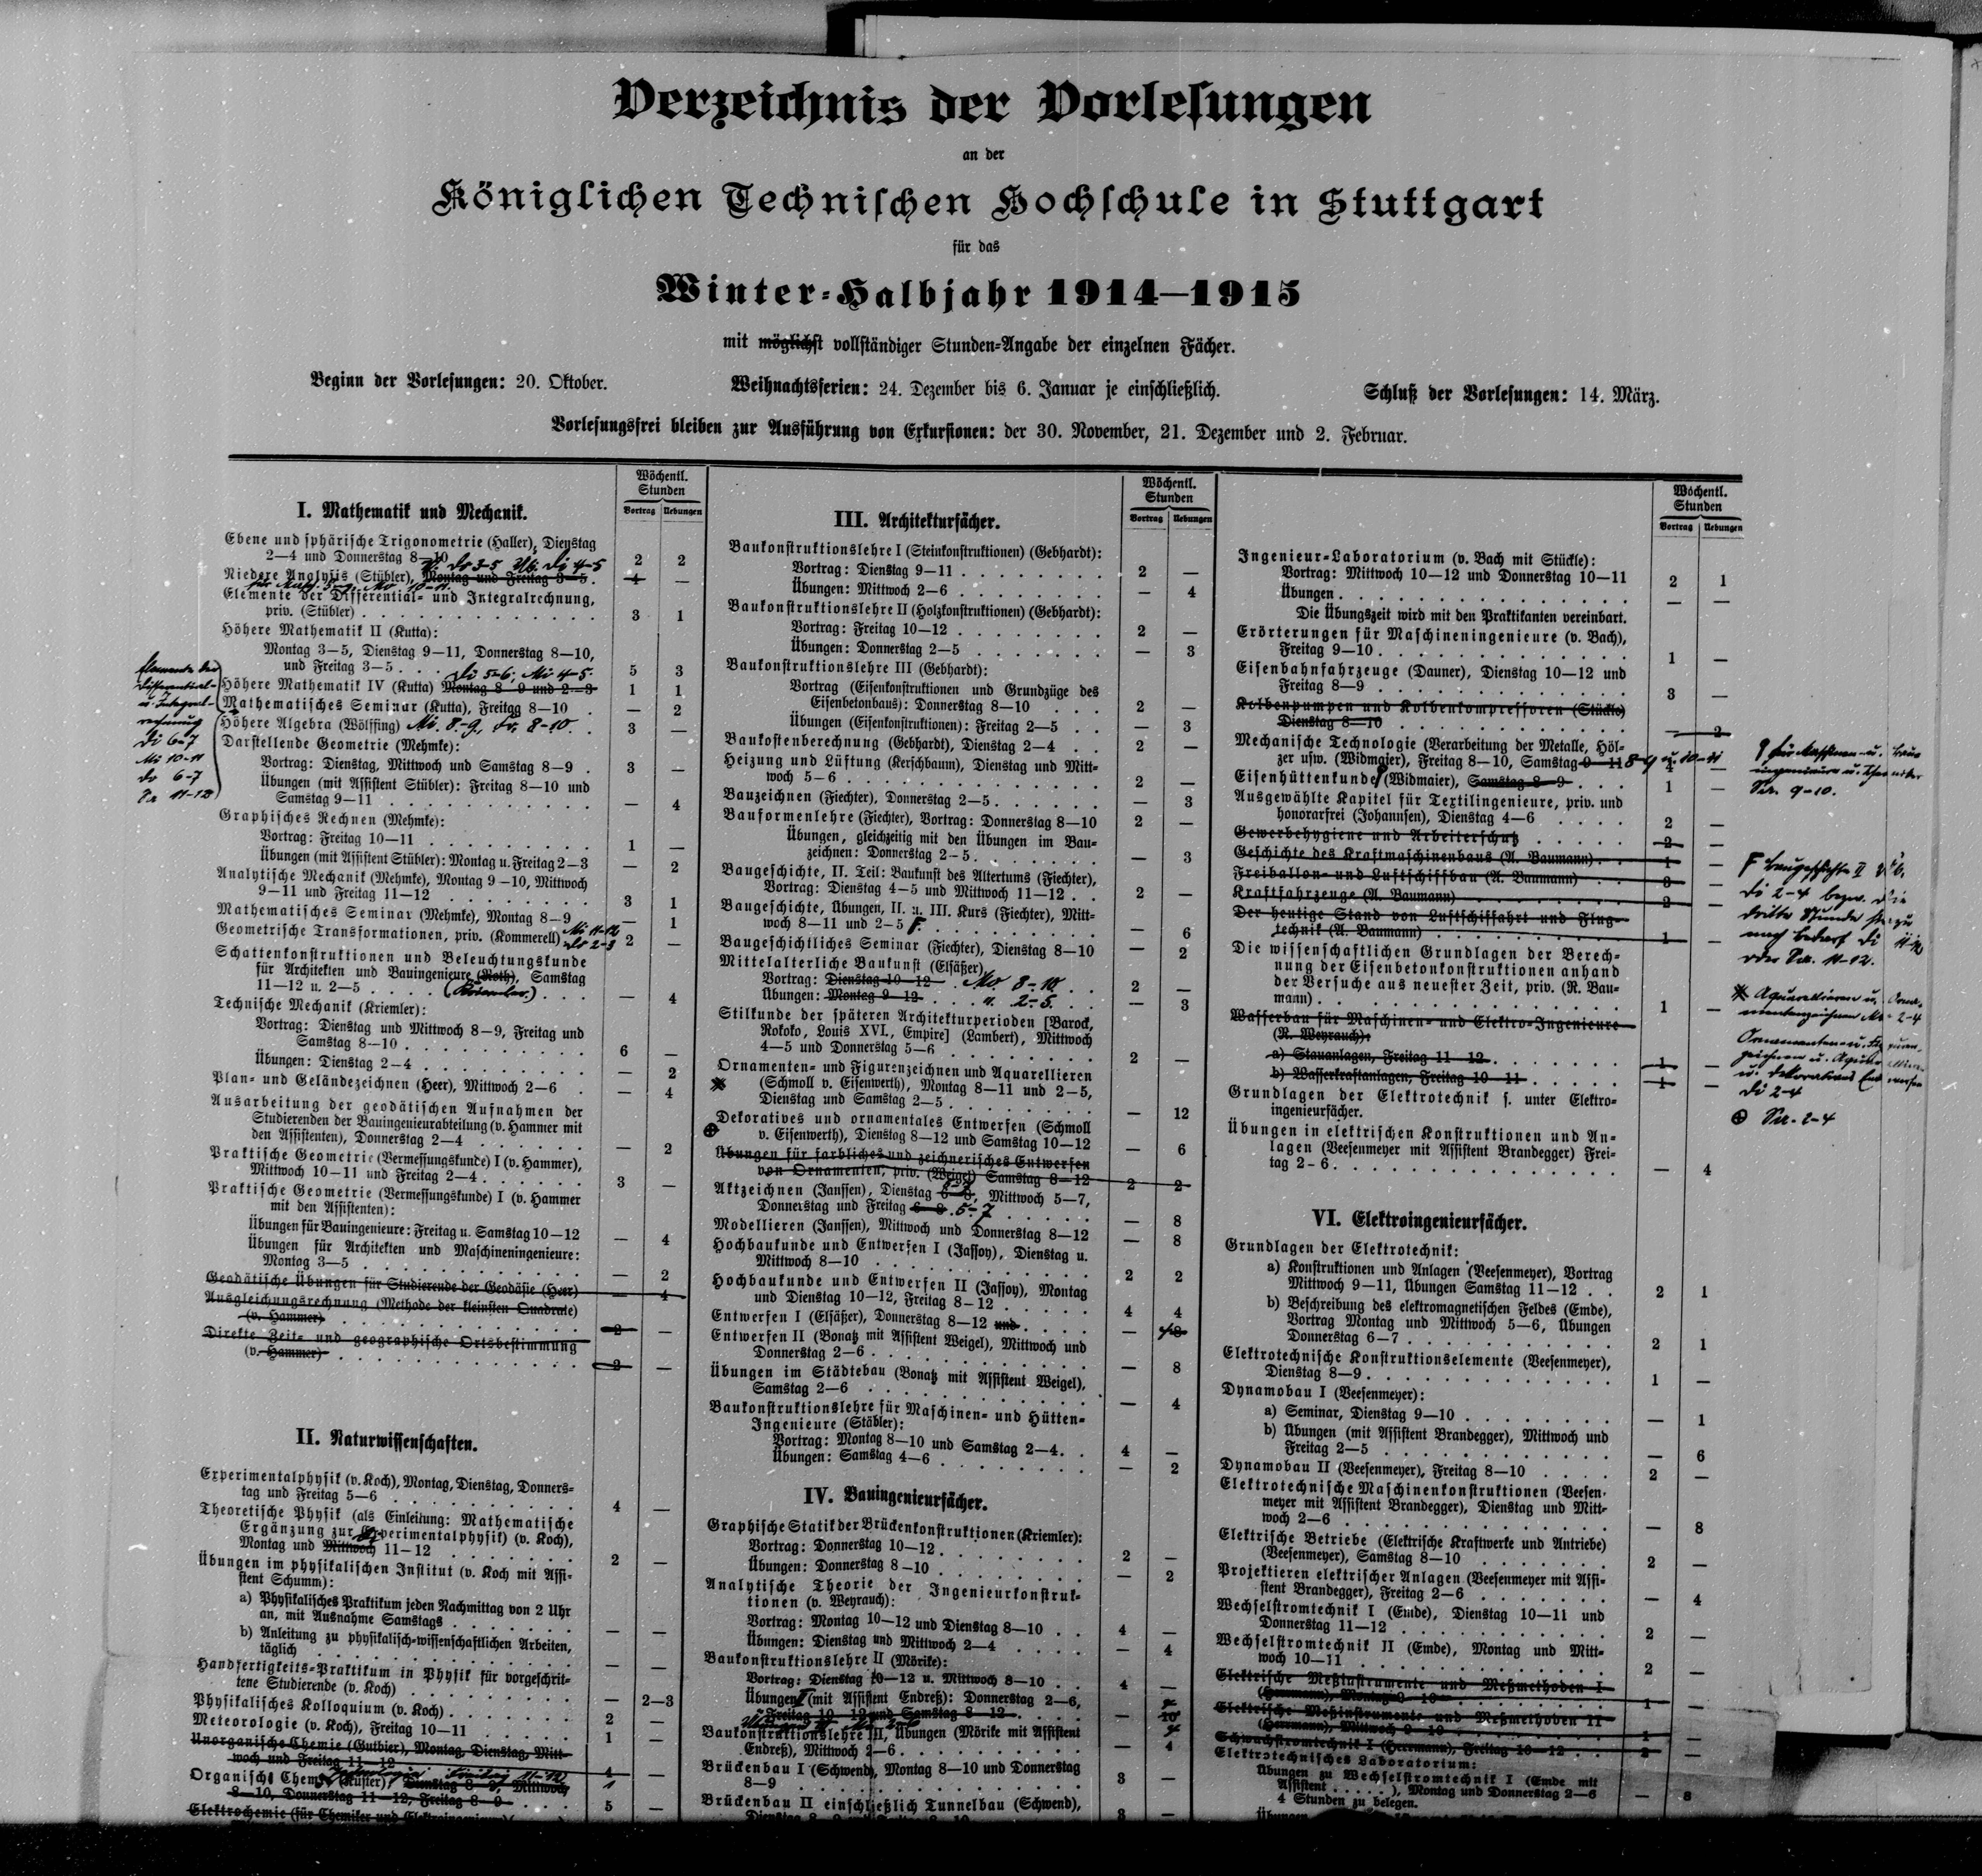 Verzeichnis der Vorlesungen
an der
Königlichen Technischen Hochschule in Stuttgart
für das
Winter-Halbjahr 1914—1915
mit möglichst vollständiger Stunden-Angabe der einzelnen Fächer.
Beginn der Vorlesungen: 20. Oktober. Weihnachtsferien: 24. Dezember bis 6. Januar je einschließlich. Schluß der Vorlesungen: 14. März.
Vorlesungsfrei bleiben zur Ausführung von Exkursionen: der 30. November, 21. Dezember und 2. Februar.
Wöchentl.
Stunden
Vortrag Uebungen
I. Mathematik und Mechanik.
Ebene und sphärische Trigonometrie (Haller), Dienstag
2—4 und Donnerstag 8—10 2 2
V. Do 3-5 Üb. Di 4-5
Niedere Analysis (Stübler), Montag und Freitag 3—5 . 4 —
Elemente der Differential- und Integralrechnung,
priv. (Stübler) . . . 3 1
Höhere Mathematik II (Kutta):
Montag 3—5, Dienstag 9—11, Donnerstag 8—10,
und Freitag 3—5 . . . 5 3
Di 5-6, Mi 4-5.
Höhere Mathematik IV (Kutta) Montag 8—9 und 2—3 1 1
Mathematisches Seminar (Kutta), Freitag 8—10 . — 2
Höhere Algebra (Wölffing) Mi. 8-9, Fr. 8-10. 3 —
Elemente der
Differential-
u. Integral-
rechnung
Di 6-7
Mi 10-11
Do 6-7
Sa 11-12
Darstellende Geometrie (Mehmke):
Vortrag: Dienstag, Mittwoch und Samstag 8—9 . 3 —
Übungen (mit Assistent Stübler): Freitag 8—10 und
Samstag 9—11 . . . — 4
Graphisches Rechnen (Mehmke):
Vortrag: Freitag 10—11 . . . 1 —
Übungen (mit Assistent Stübler): Montag u. Freitag 2—3 — 2
Analytische Mechanik (Mehmke), Montag 9—10, Mittwoch
9—11 und Freitag 11—12 . . . 3 1
Mathematisches Seminar (Mehmke), Montag 8—9 — 1
Geometrische Transformationen, priv. (Kommerell) Mi 11-12 Do 2-3 2 —
Schattenkonstruktionen und Beleuchtungskunde
für Architekten und Bauingenieure (Roth), Samstag
11—12 u. 2—5 . . . — 4
Technische Mechanik (Kriemler):
Vortrag: Dienstag und Mittwoch 8—9, Freitag und
Samstag 8—10 . . . 6 —
Übungen: Dienstag 2—4 . . . — 2
Plan- und Geländezeichnen (Heer), Mittwoch 2—6 . — 4
Ausarbeitung der geodätischen Aufnahmen der
Studierenden der Bauingenieurabteilung (v. Hammer mit
den Assistenten), Donnerstag 2—4 . . . — 2
Praktische Geometrie (Vermessungskunde) I (v. Hammer),
Mittwoch 10—11 und Freitag 2—4 . . . 3 —
Praktische Geometrie (Vermessungskunde) I (v. Hammer
mit den Assistenten):
Übungen für Bauingenieure: Freitag u. Samstag 10—12 — 4
Übungen für Architekten und Maschineningenieure:
Montag 3—5 . . . — 2
Geodätische Übungen für Studierende der Geodäsie (Heer) — 4
Ausgleichungsrechnung (Methode der kleinsten Quadrate)
(v. Hammer) . . . 2 —
Direkte Zeit- und geographische Ortsbestimmung
(v. Hammer) . . . 2 —
II. Naturwissenschaften.
Experimentalphysik (v. Koch), Montag, Dienstag, Donners-
tag und Freitag 5—6 . . . 4 —
Theoretische Physik (als Einleitung: Mathematische
Ergänzung zur Experimentalphysik) (v. Koch),
Montag und Mittwoch 11—12 . . . 2 —
Übungen im physikalischen Institut (v. Koch mit Assi-
stent Schumm):
a) Physikalisches Praktikum jeden Nachmittag von 2 Uhr
an, mit Ausnahme Samstags . . . — —
b) Anleitung zu physikalisch-wissenschaftlichen Arbeiten,
täglich . . . — —
Handfertigkeits-Praktikum in Physik für vorgeschrit-
tene Studierende (v. Koch) . . . — 2—3
Physikalisches Kolloquium (v. Koch) . . . 2 —
Meteorologie (v. Koch), Freitag 10—11 . . . 1 —
Unorganische Chemie (Gutbier), Montag, Dienstag, Mitt-
woch und Freitag 11—12 . . . 4 —
Organische Chemie (Küster), Dienstag 8—9, Mittwoch
8—10, Donnerstag 11—12, Freitag 8—9 . . . 5 —
Elektrochemie (für Chemiker und Elektroingenieure)
Wöchentl.
Stunden
Vortrag Uebungen
III. Architekturfächer.
Baukonstruktionslehre I (Steinkonstruktionen) (Gebhardt):
Vortrag: Dienstag 9—11 . . . 2 —
Übungen: Mittwoch 2—6 . . . — 4
Baukonstruktionslehre II (Holzkonstruktionen) (Gebhardt):
Vortrag: Freitag 10—12 . . . 2 —
Übungen: Donnerstag 2—5 . . . — 3
Baukonstruktionslehre III (Gebhardt):
Vortrag (Eisenkonstruktionen und Grundzüge des
Eisenbetonbaus): Donnerstag 8—10 . . . 2 —
Übungen (Eisenkonstruktionen): Freitag 2—5 . . — 3
Baukostenberechnung (Gebhardt), Dienstag 2—4 . . 2 —
Heizung und Lüftung (Kerschbaum), Dienstag und Mitt-
woch 5—6 . . . 2 —
Bauzeichnen (Fiechter), Donnerstag 2—5 . . . — 3
Bauformenlehre (Fiechter), Vortrag: Donnerstag 8—10 2 —
Übungen, gleichzeitig mit den Übungen im Bau-
zeichnen: Donnerstag 2—5 . . . — 3
Baugeschichte, II. Teil: Baukunst des Altertums (Fiechter),
Vortrag: Dienstag 4—5 und Mittwoch 11—12 . . 2 —
Baugeschichte, Übungen, II. u. III. Kurs (Fiechter), Mitt-
woch 8—11 und 2—5 . . . — 6
Baugeschichtliches Seminar (Fiechter), Dienstag 8—10 — 2
Mittelalterliche Baukunst (Elsäßer),
Vortrag: Dienstag 10—12 . Mo 8-10 . . 2 —
Übungen: Montag 9—12 . . . u. 2-5. . . — 3
Stilkunde der späteren Architekturperioden [Barock,
Rokoko, Louis XVI., Empire] (Lambert), Mittwoch
4—5 und Donnerstag 5—6 . . . 2 —
Ornamenten- und Figurenzeichnen und Aquarellieren
(Schmoll v. Eisenwerth), Montag 8—11 und 2—5,
Dienstag und Samstag 2—5 . . . — 12
Dekoratives und ornamentales Entwerfen (Schmoll
v. Eisenwerth), Dienstag 8—12 und Samstag 10—12 — 6
Übungen für farbliches und zeichnerisches Entwerfen
von Ornamenten, priv. (Weigel) Samstag 8—12 2 2
Aktzeichnen (Janssen), Dienstag 6—8, Mittwoch 5—7,
Donnerstag und Freitag 6—8 . 5-7 . . . — 8
Modellieren (Janssen), Mittwoch und Donnerstag 8—12 — 8
Hochbaukunde und Entwerfen I (Jassoy), Dienstag u.
Mittwoch 8—10 . . . 2 2
Hochbaukunde und Entwerfen II (Jassoy), Montag
und Dienstag 10—12, Freitag 8—12 . . . 4 4
Entwerfen I (Elsäßer), Donnerstag 8—12 und . . . —
Entwerfen II (Bonatz mit Assistent Weigel), Mittwoch und
Donnerstag 2—6 . . . — 8
Übungen im Städtebau (Bonatz mit Assistent Weigel),
Samstag 2—6 . . . — 4
Baukonstruktionslehre für Maschinen- und Hütten-
Ingenieure (Stäbler):
Vortrag: Montag 8—10 und Samstag 2—4 . . 4 —
Übungen: Samstag 4—6 . . . — 2
IV. Bauingenieurfächer.
Graphische Statik der Brückenkonstruktionen (Kriemler):
Vortrag: Donnerstag 10—12 . . . 2 —
Übungen: Donnerstag 8—10 . . . — 2
Analytische Theorie der Ingenieurkonstruk-
tionen (v. Weyrauch):
Vortrag: Montag 10—12 und Dienstag 8—10 . . 4 —
Übungen: Dienstag und Mittwoch 2—4 . . . — 4
Baukonstruktionslehre II (Mörike):
Vortrag: Dienstag 10—12 u. Mittwoch 8—10 . . 4 —
Übungen (mit Assistent Endreß): Donnerstag 2—6,
Freitag 10—12 und Samstag 8—12 . . . — 10
Baukonstruktionslehre III, Übungen (Mörike mit Assistent
Endreß), Mittwoch 2—6 . . . — 4
Brückenbau I (Schwend), Montag 8—10 und Donnerstag
8—9 . . . 3 —
Brückenbau II einschließlich Tunnelbau (Schwend),
Wöchentl.
Stunden
Vortrag Uebungen
Ingenieur-Laboratorium (v. Bach mit Stückle):
Vortrag: Mittwoch 10—12 und Donnerstag 10—11 2 1
Übungen . . . — —
Die Übungszeit wird mit den Praktikanten vereinbart.
Erörterungen für Maschineningenieure (v. Bach),
Freitag 9—10 . . . 1 —
Eisenbahnfahrzeuge (Dauner), Dienstag 10—12 und
Freitag 8—9 . . . 3 —
Kolbenpumpen und Kolbenkompressoren (Stückle)
Dienstag 8—10 . . . — 2
Mechanische Technologie (Verarbeitung der Metalle, Höl-
zer usw. (Widmaier), Freitag 8—10, Samstag 9—11 8-9 u. 10-11 4 —
Eisenhüttenkunde (Widmaier), Samstag 8—9 . . . 1 —
Ausgewählte Kapitel für Textilingenieure, priv. und
honorarfrei (Johannsen), Dienstag 4—6 . . . 2 —
Gewerbehygiene und Arbeiterschutz . . . 2 —
Geschichte des Kraftmaschinenbaus (A. Baumann) . . 1 —
Freiballon- und Luftschiffbau (A. Baumann) . . 3 —
Kraftfahrzeuge (A. Baumann) . . . 2 —
Der heutige Stand von Luftschiffahrt und Flug-
technik (A. Baumann) . . . 1 —
Die wissenschaftlichen Grundlagen der Berech-
nung der Eisenbetonkonstruktionen anhand
der Versuche aus neuester Zeit, priv. (R. Bau-
mann) . . . 1 —
Wasserbau für Maschinen- und Elektro-Ingenieure
(R. Weyrauch):
a) Stauanlagen, Freitag 11—12 . . . 1 —
b) Wasserkraftanlagen, Freitag 10—11 . . . 1 —
Grundlagen der Elektrotechnik s. unter Elektro-
ingenieurfächer.
Übungen in elektrischen Konstruktionen und An-
lagen (Veesenmeyer mit Assistent Brandegger) Frei-
tag 2—6 . . . — 4
VI. Elektroingenieurfächer.
Grundlagen der Elektrotechnik:
a) Konstruktionen und Anlagen (Veesenmeyer), Vortrag
Mittwoch 9—11, Übungen Samstag 11—12 . . 2 1
b) Beschreibung des elektromagnetischen Feldes (Emde),
Vortrag Montag und Mittwoch 5—6, Übungen
Donnerstag 6—7 . . . 2 1
Elektrotechnische Konstruktionselemente (Veesenmeyer),
Dienstag 8—9 . . . 1 —
Dynamobau I (Veesenmeyer):
a) Seminar, Dienstag 9—10 . . . — 1
b) Übungen (mit Assistent Brandegger), Mittwoch und
Freitag 2—5 . . . — 6
Dynamobau II (Veesenmeyer), Freitag 8—10 . . . 2 —
Elektrotechnische Maschinenkonstruktionen (Veesen-
meyer mit Assistent Brandegger), Dienstag und Mitt-
woch 2—6 . . . — 8
Elektrische Betriebe (Elektrische Kraftwerke und Antriebe)
(Veesenmeyer), Samstag 8—10 . . . 2 —
Projektieren elektrischer Anlagen (Veesenmeyer mit Assi-
stent Brandegger), Freitag 2—6 . . . — 4
Wechselstromtechnik I (Emde), Dienstag 10—11 und
Donnerstag 11—12 . . . 2 —
Wechselstromtechnik II (Emde), Montag und Mitt-
woch 10—11 . . . 2 —
Elektrische Meßinstrumente und Meßmethoden I
(Herrmann), Montag 9—10 . . . 1 —
Elektrische Meßinstrumente und Meßmethoden II
(Herrmann), Mittwoch 9—10 . . . 1 —
Schwachstromtechnik I (Herrmann), Freitag 10—12 . . 2 —
Elektrotechnisches Laboratorium:
Übungen zu Wechselstromtechnik I (Emde mit
Assistent . . . . .), Montag und Donnerstag 2—6 — 8
4 Stunden zu belegen.
Übungen
Sa. 9-10.
F Baugeschichte II Üb.
Di 2-4 bezw. die
dritte Stunde
nach Bedarf Di 11-12
oder Sa. 11-12.
Aquarellieren u.
Di 2-4
⊕ Sa. 2-4